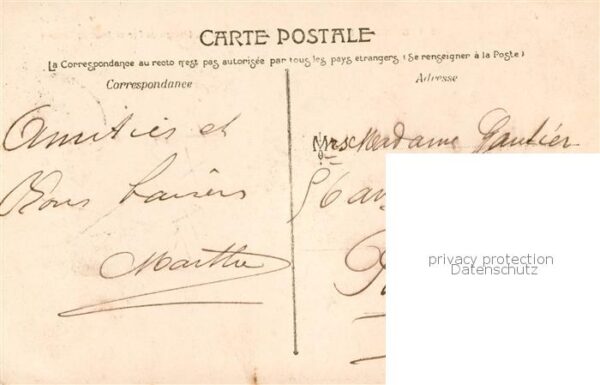 CARTE POSTALE
La Correspondance au recto n'est pas autorisée par tous les pays etrangers (Se renseigner à la Poste)
Correspondance
Adresse
Amitiés et
Bons baisers
Marthe
Madame Gautier
56 av
privacy protection
Datenschutz